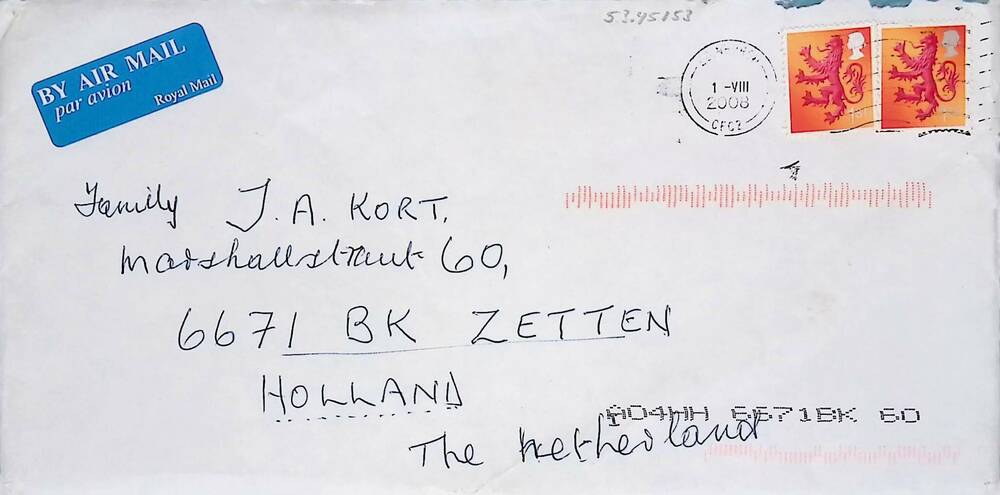 53.45153
BY AIR MAIL
par avion
Royal Mail
1 -VIII
2008
1st
1st
Family J. A. KORT.
Marshallstraat 60,
6671 BK ZETTEN
HOLLAND
A04HH 6671BK 60
The Netherland